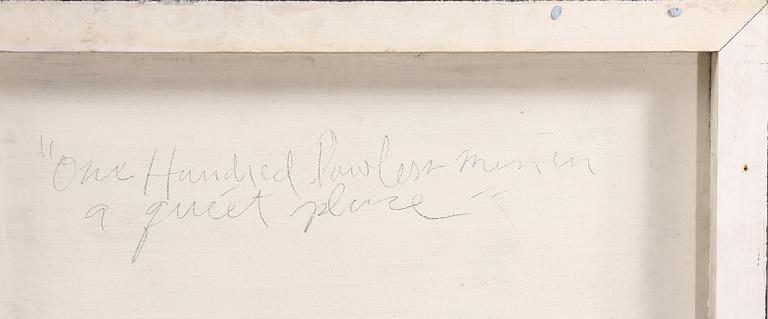 "One Hundred Powless men in
a quiet place"